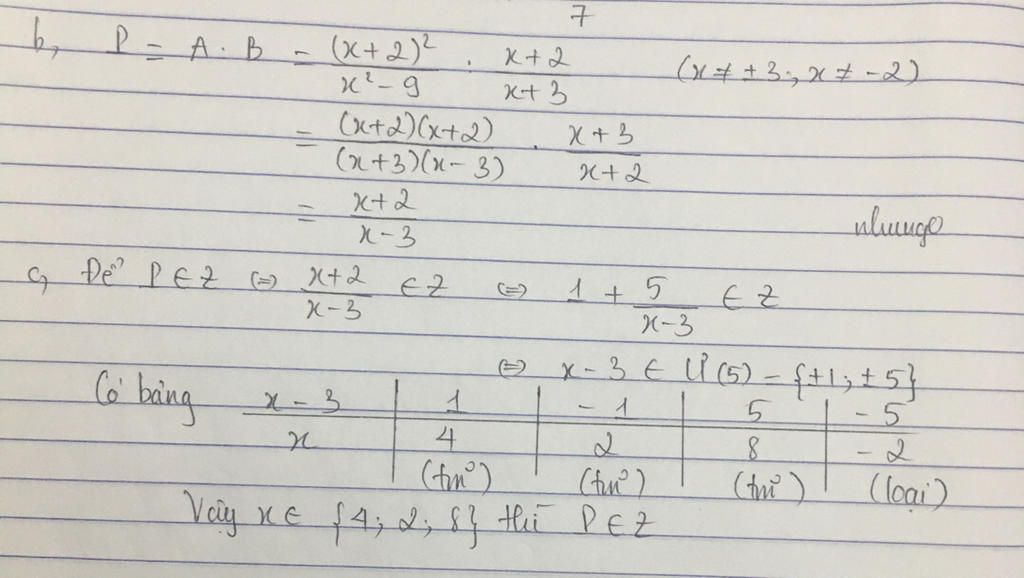 7
b, P = A . B = (x+2)² / x² - 9 . x+2 / x+3 (x ≠ ±3; x ≠ -2)
= (x+2)(x+2) / (x+3)(x-3) . x+3 / x+2
= x+2 / x-3
nhungo
c, Để P ∈ Z ⇔ x+2 / x-3 ∈ Z ⇔ 1 + 5 / x-3 ∈ Z
⇔ x-3 ∈ Ư(5) = {±1; ±5}
Có bảng x-3 | 1 | -1 | 5 | -5
x | 4 | 2 | 8 | -2
(tm) (tm) (tm) (loại)
Vậy x ∈ {4; 2; 8} thì P ∈ Z